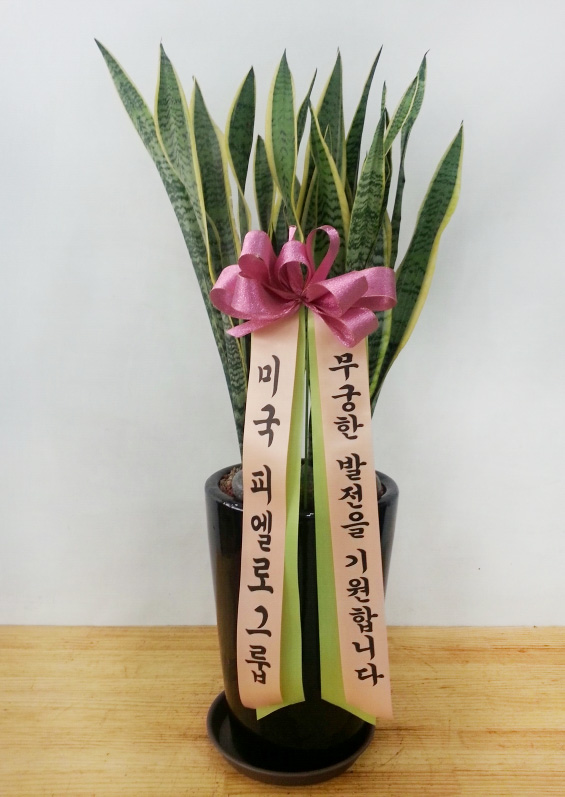 미국 피엘로그룹
무궁한 발전을 기원합니다